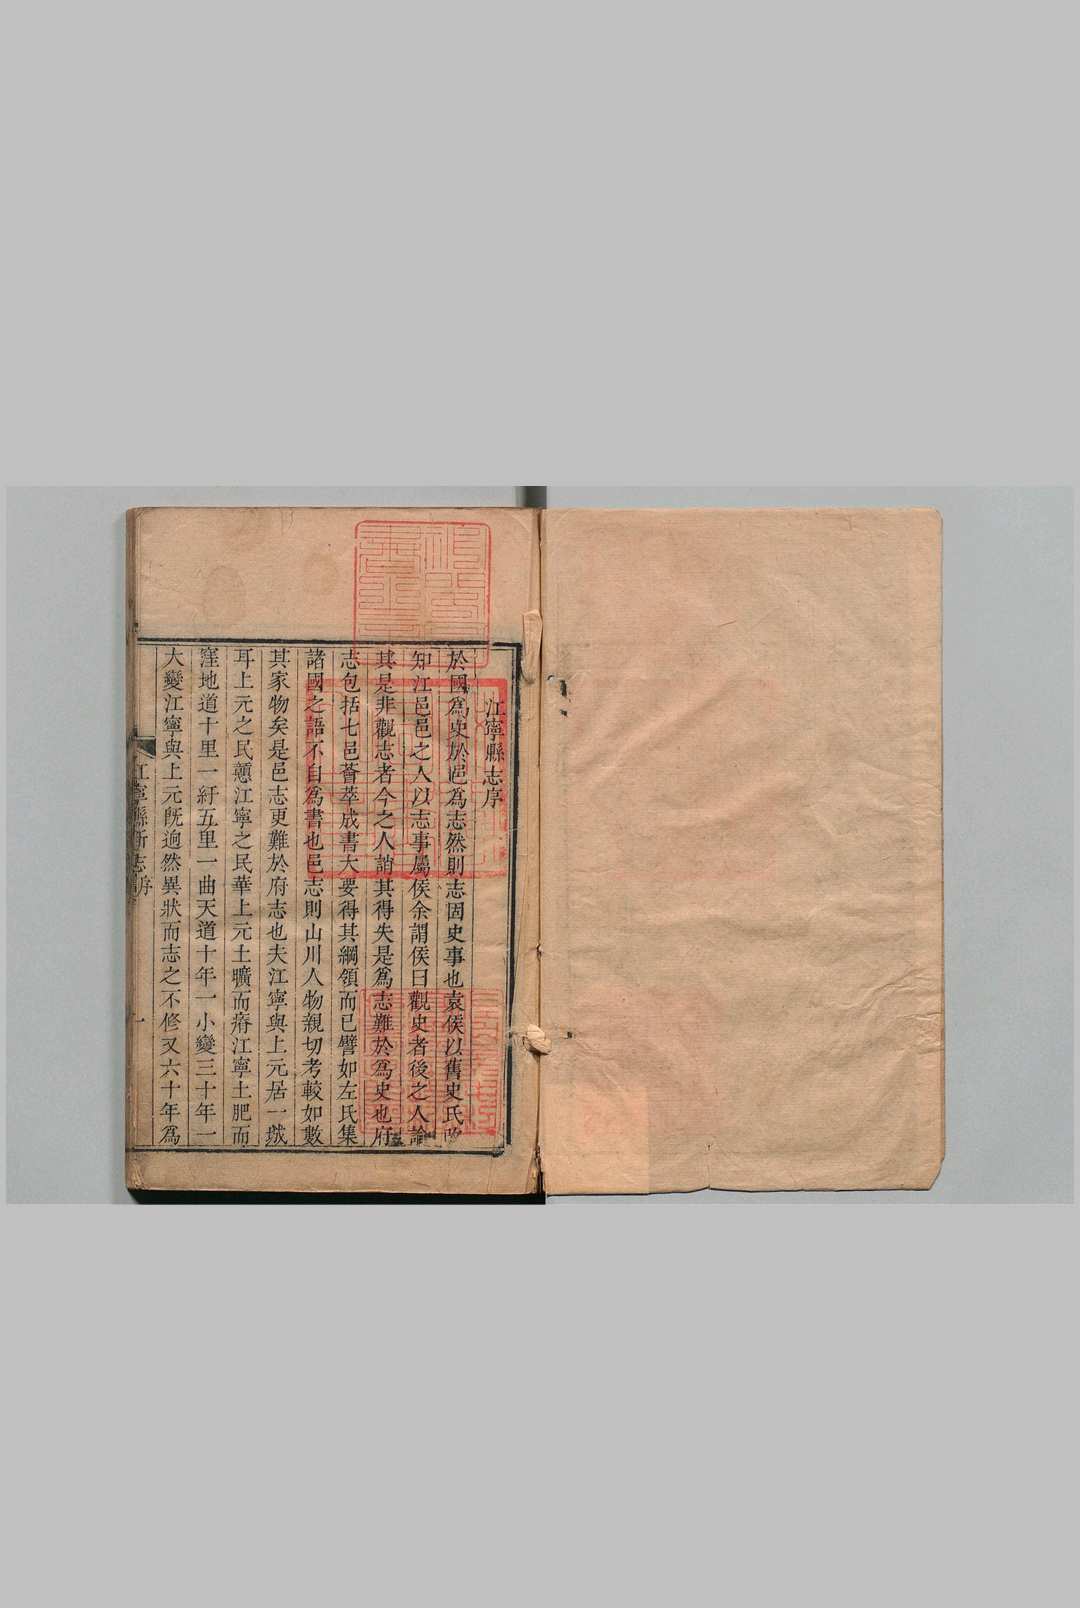 江寧縣志序
於國爲史於邑爲志然則志固史事也袁侯以舊史氏改
知江邑邑之人以志事屬侯余謂侯曰觀史者後之人論
其是非觀志者今之人誚其得失是爲志難於爲史也府
志包括七邑薈萃成書大要得其綱領而已譬如左氏集
諸國之語不自爲書也邑志則山川人物親切考較如數
其家物矣是邑志更難於府志也夫江寧與上元居一城
耳上元之民憩江寧之民華上元土曠而瘠江寧土肥而
窪地道十里一紆五里一曲天道十年一小變三十年一
大變江寧與上元旣逈然異狀而志之不修又六十年爲
江寧縣新志序
一